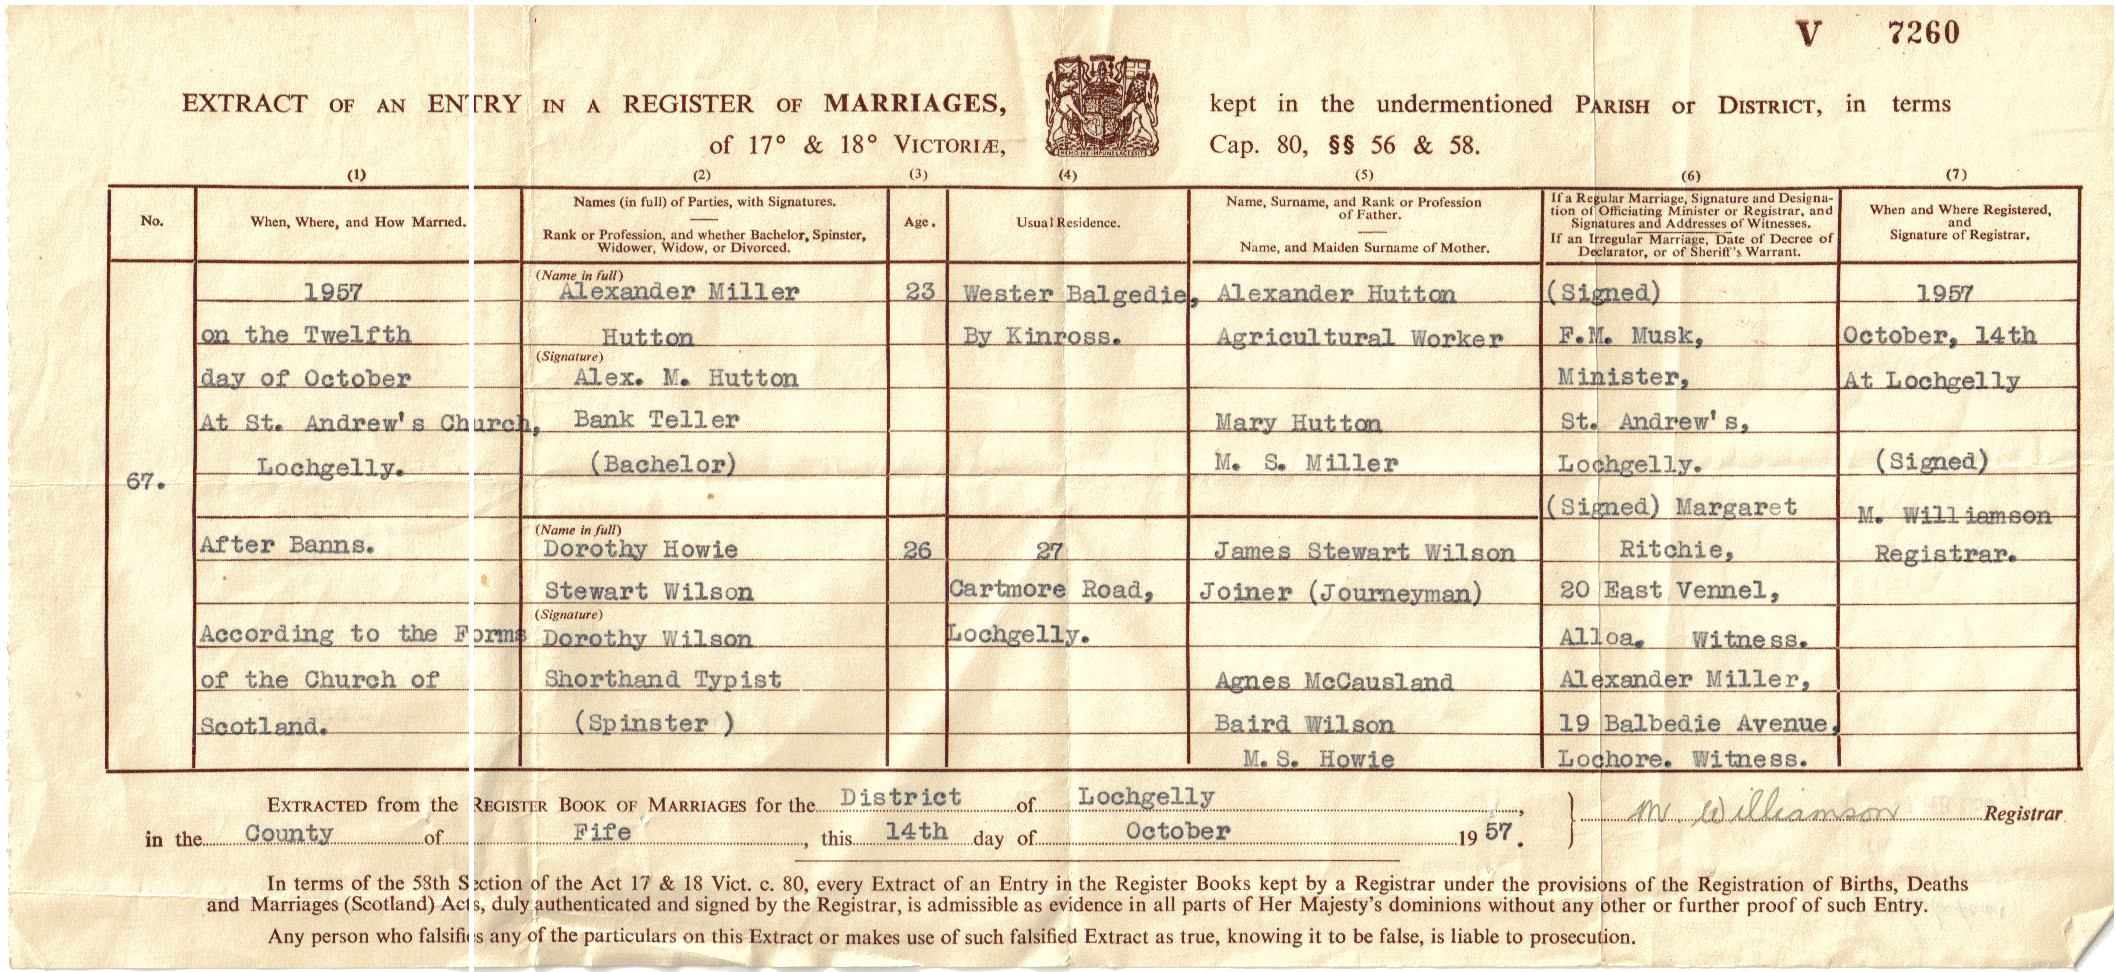 V 7260
EXTRACT OF AN ENTRY IN A REGISTER OF MARRIAGES, kept in the undermentioned PARISH or DISTRICT, in terms
of 17° & 18° VICTORIÆ, Cap. 80, §§ 56 & 58.
(1) (2) (3) (4) (5) (6) (7)
No.
When, Where, and How Married.
Names (in full) of Parties, with Signatures.
Rank or Profession, and whether Bachelor, Spinster,
Widower, Widow, or Divorced.
Age.
Usual Residence.
Name, Surname, and Rank or Profession
of Father.
Name, and Maiden Surname of Mother.
If a Regular Marriage, Signature and Designa-
tion of Officiating Minister or Registrar, and
Signatures and Addresses of Witnesses.
If an Irregular Marriage, Date of Decree of
Declarator, or of Sheriff's Warrant.
When and Where Registered,
and
Signature of Registrar.
67.
1957
on the Twelfth
day of October
At St. Andrew's Church,
Lochgelly.
After Banns.
According to the Forms
of the Church of
Scotland.
(Name in full)
Alexander Miller
Hutton
(Signature)
Alex. M. Hutton
Bank Teller
(Bachelor)
(Name in full)
Dorothy Howie
Stewart Wilson
(Signature)
Dorothy Wilson
Shorthand Typist
(Spinster )
23
26
Wester Balgedie,
By Kinross.
27
Cartmore Road,
Lochgelly.
Alexander Hutton
Agricultural Worker
Mary Hutton
M. S. Miller
James Stewart Wilson
Joiner (Journeyman)
Agnes McCausland
Baird Wilson
M.S. Howie
(Signed)
F.M. Musk,
Minister,
St. Andrew's,
Lochgelly.
(Signed) Margaret
Ritchie,
20 East Vennel,
Alloa. Witness.
Alexander Miller,
19 Balbedie Avenue,
Lochore. Witness.
1957
October, 14th
At Lochgelly
(Signed)
M. Williamson
Registrar.
EXTRACTED from the REGISTER BOOK OF MARRIAGES for the District of Lochgelly,
in the County of Fife, this 14th day of October 1957.
M. Williamson Registrar
In terms of the 58th Section of the Act 17 & 18 Vict. c. 80, every Extract of an Entry in the Register Books kept by a Registrar under the provisions of the Registration of Births, Deaths
and Marriages (Scotland) Acts, duly authenticated and signed by the Registrar, is admissible as evidence in all parts of Her Majesty's dominions without any other or further proof of such Entry.
Any person who falsifies any of the particulars on this Extract or makes use of such falsified Extract as true, knowing it to be false, is liable to prosecution.